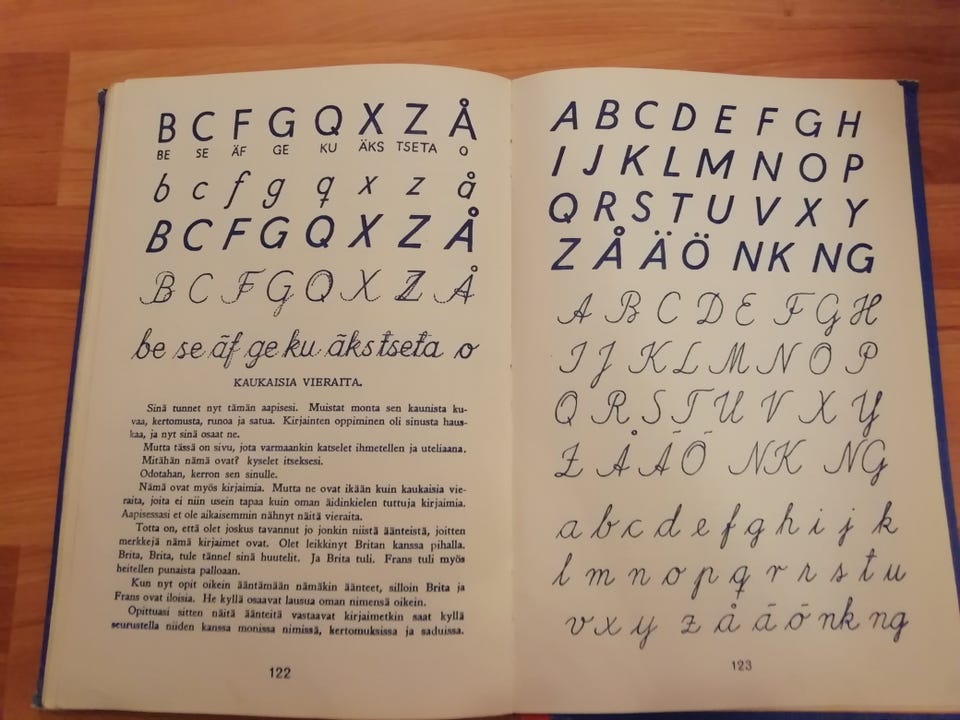 B C F G Q X Z Å
BE SE ÄF GE KU ÄKS TSETA O
b c f g q x z å
B C F G Q X Z Å
B C F G Q X Z Å
be se äf ge ku äks tseta o
KAUKAISIA VIERAITA.
Sinä tunnet nyt tämän aapisesi. Muistat monta sen kaunista ku-
vaa, kertomusta, runoa ja satua. Kirjainten oppiminen oli sinusta haus-
kaa, ja nyt sinä osaat ne.
Mutta tässä on sivu, jota varmaankin katselet ihmetellen ja uteliaana.
Mitähän nämä ovat? kyselet itseksesi.
Odotahan, kerron sen sinulle.
Nämä ovat myös kirjaimia. Mutta ne ovat ikään kuin kaukaisia vie-
raita, joita ei niin usein tapaa kuin oman äidinkielen tuttuja kirjaimia.
Aapisessasi et ole aikaisemmin nähnyt näitä vieraita.
Totta on, että olet joskus tavannut jo jonkin niistä äänteistä, joitten
merkkejä nämä kirjaimet ovat. Olet leikkinyt Britan kanssa pihalla.
Brita, Brita, tule tänne! sinä huutelit. Ja Brita tuli. Frans tuli myös
heitellen punaista palloaan.
Kun nyt opit oikein ääntämään nämäkin äänteet, silloin Brita ja
Frans ovat iloisia. He kyllä osaavat lausua oman nimensä oikein.
Opittuasi sitten näitä äänteitä vastaavat kirjaimetkin saat kyllä
seurustella niiden kanssa monissa nimissä, kertomuksissa ja saduissa.
122
A B C D E F G H
I J K L M N O P
Q R S T U V X Y
Z Å Ä Ö NK NG
A B C D E F G H
I J K L M N O P
Q R S T U V X Y
Z Å Ä Ö NK NG
a b c d e f g h i j k
l m n o p q r r s t u
v x y z å ä ö nk ng
123